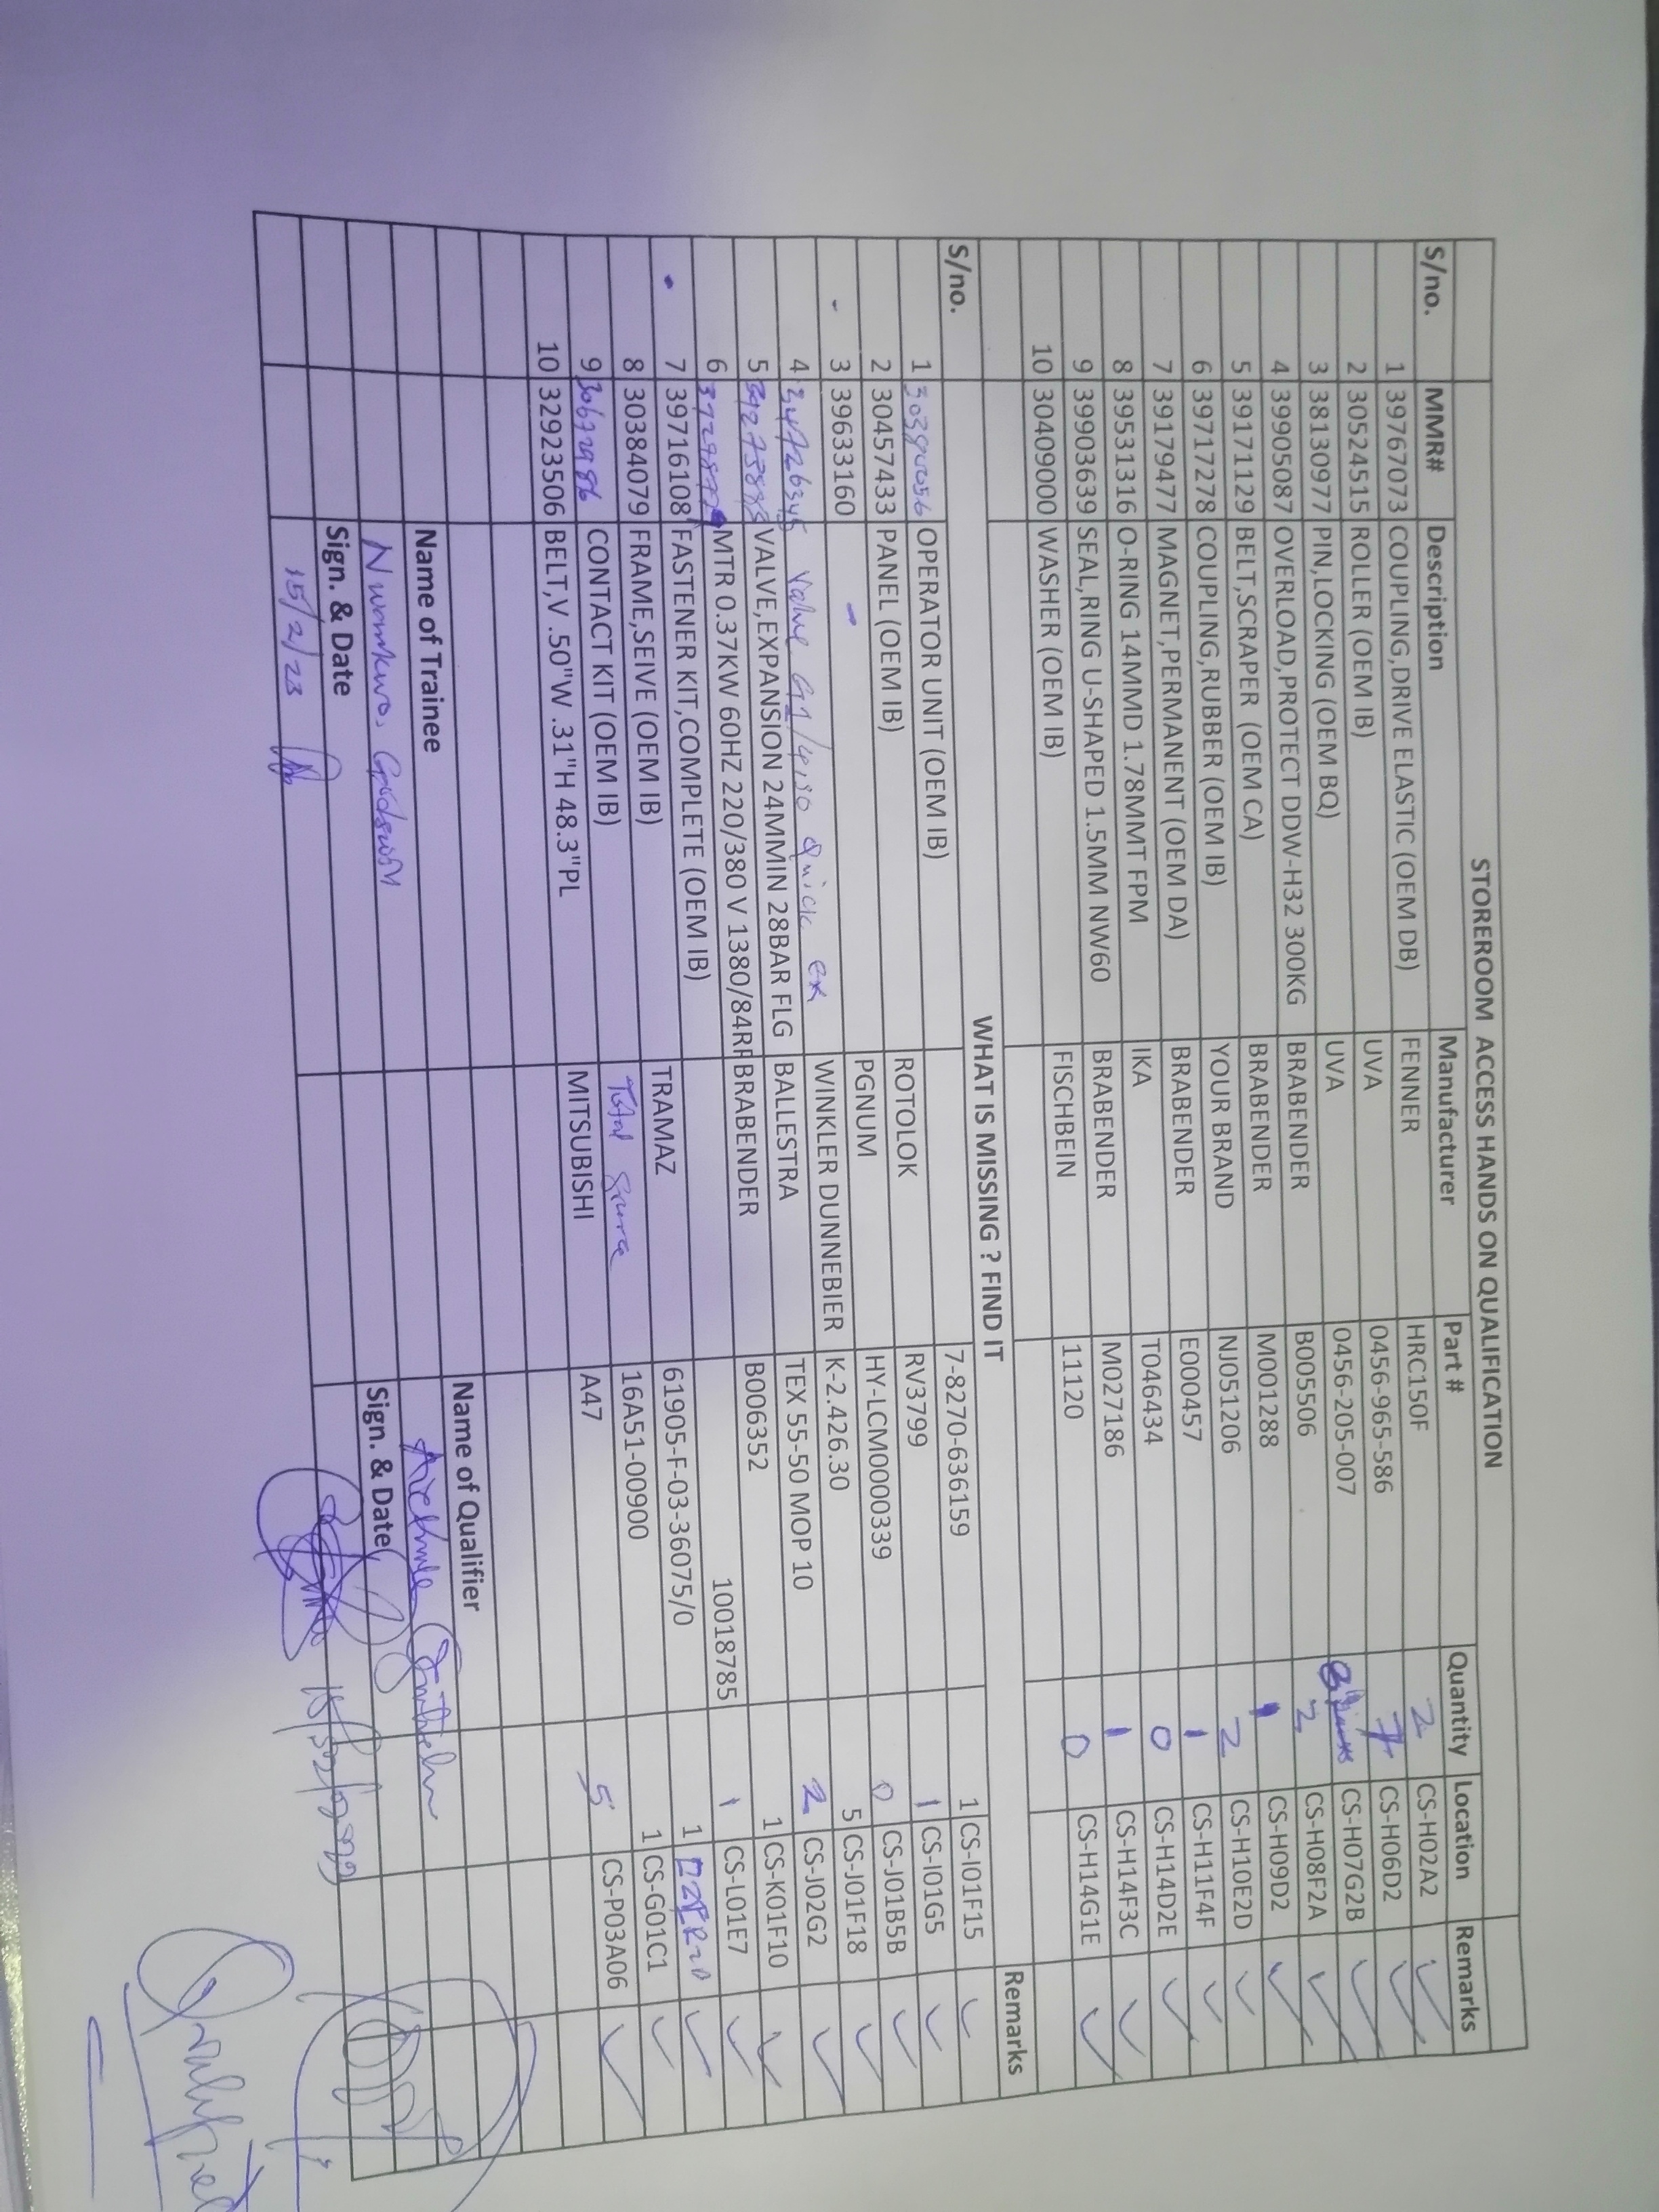 STOREROOM ACCESS HANDS ON QUALIFICATION
S/no. MMR# Description Manufacturer Part # Quantity Location Remarks
1 39767073 COUPLING,DRIVE ELASTIC (OEM DB) FENNER HRC150F 2 CS-H02A2 ✓
2 30524515 ROLLER (OEM IB) UVA 0456-965-586 7 CS-H06D2 ✓
3 38130977 PIN,LOCKING (OEM BQ) UVA 0456-205-007 CS-H07G2B ✓
4 39905087 OVERLOAD,PROTECT DDW-H32 300KG BRABENDER B005506 2 CS-H08F2A ✓
5 39171129 BELT,SCRAPER (OEM CA) BRABENDER M001288 1 CS-H09D2 ✓
6 39717278 COUPLING,RUBBER (OEM IB) YOUR BRAND NJ051206 2 CS-H10E2D ✓
7 39179477 MAGNET,PERMANENT (OEM DA) BRABENDER E000457 1 CS-H11F4F ✓
8 39531316 O-RING 14MMD 1.78MMT FPM IKA T046434 0 CS-H14D2E ✓
9 39903639 SEAL,RING U-SHAPED 1.5MM NW60 BRABENDER M027186 1 CS-H14F3C ✓
10 30409000 WASHER (OEM IB) FISCHBEIN 11120 0 CS-H14G1E ✓
WHAT IS MISSING ? FIND IT
S/no. Remarks
1 OPERATOR UNIT (OEM IB) 7-8270-636159 1 CS-I01F15 ✓
2 30457433 PANEL (OEM IB) ROTOLOK RV3799 1 CS-I01G5 ✓
3 39633160 - PGNUM HY-LCM0000339 0 CS-J01B5B ✓
4 Valve G1/4 iso Quick ex WINKLER DUNNEBIER K-2.426.30 5 CS-J01F18 ✓
5 VALVE,EXPANSION 24MMIN 28BAR FLG BALLESTRA TEX 55-50 MOP 10 2 CS-J02G2 ✓
6 MTR 0.37KW 60HZ 220/380 V 1380/84RP BRABENDER B006352 1 CS-K01F10 ✓
7 39716108 FASTENER KIT,COMPLETE (OEM IB) 10018785 1 CS-L01E7 ✓
8 30384079 FRAME,SEIVE (OEM IB) TRAMAZ 61905-F-03-36075/0 1 ✓
9 30672986 CONTACT KIT (OEM IB) Total Source 16A51-00900 1 CS-G01C1 ✓
10 32923506 BELT,V .50"W .31"H 48.3"PL MITSUBISHI A47 5 CS-P03A06 ✓
Name of Trainee Name of Qualifier
Sign. & Date Sign. & Date
15/2/23